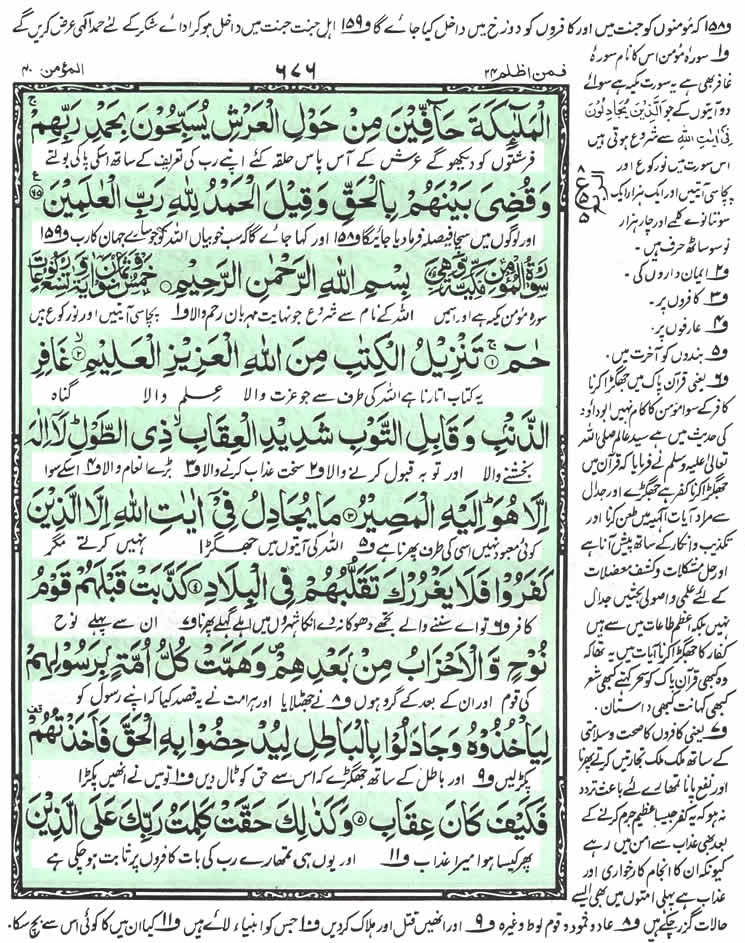 و۱۵۸ کہ مؤمنوں کو جنت میں اور کافروں کو دوزخ میں داخل کیا جائے گا و۱۵۹ اہل جنت جنت میں داخل ہو کر ادائے شکر کے لئے حمد الٰہی عرض کریں گے
فمن اظلم ۲۴
۶۷۶
المؤمن ۴۰
الْمَلٰٓئِكَةَ حَآفِّيْنَ مِنْ حَوْلِ الْعَرْشِ يُسَبِّحُوْنَ بِحَمْدِ رَبِّهِمْ ۚ
فرشتوں کو دیکھو گے عرش کے آس پاس حلقہ کئے اپنے رب کی تعریف کے ساتھ اسکی پاکی بولتے
وَ قُضِیَ بَيْنَهُمْ بِالْحَقِّ وَ قِيْلَ الْحَمْدُ لِلّٰهِ رَبِّ الْعٰلَمِيْنَ ۷۵
اور لوگوں میں سچا فیصلہ فرمادیا جائیگا و۱۵۸ اور کہا جائے گا کہ سب خوبیاں اللہ کو جو سارے جہان کا رب و۱۵۹
بِسْمِ اللّٰهِ الرَّحْمٰنِ الرَّحِيْمِ
سورۂ مؤمن مکیہ ہے اور اسمیں اللہ کے نام سے شروع جو نہایت مہربان رحم والا و۱ پچاسی آیتیں اور نو رکوع ہیں
حٰمٓ ۱ تَنْزِيْلُ الْكِتٰبِ مِنَ اللّٰهِ الْعَزِيْزِ الْعَلِيْمِ ۲ غَافِرِ
یہ کتاب اتارنا ہے اللہ کی طرف سے جو عزت والا علم والا گناہ
الذَّنْۢبِ وَ قَابِلِ التَّوْبِ شَدِيْدِ الْعِقَابِ ۙ ذِی الطَّوْلِ ؕ لَاۤ اِلٰهَ
بخشنے والا اور توبہ قبول کرنے والا و۲ سخت عذاب کرنے والا و۳ بڑے انعام والا و۴ اسکے سوا
اِلَّا هُوَ ؕ اِلَيْهِ الْمَصِيْرُ ۳ مَا يُجَادِلُ فِیْۤ اٰيٰتِ اللّٰهِ اِلَّا الَّذِيْنَ
کوئی معبود نہیں اسی کی طرف پھرنا ہے و۵ اللہ کی آیتوں میں جھگڑا نہیں کرتے مگر
كَفَرُوْا فَلَا يَغْرُرْكَ تَقَلُّبُهُمْ فِی الْبِلَادِ ۴ كَذَّبَتْ قَبْلَهُمْ قَوْمُ
کافر و۶ تو اے سننے والے تجھے دھوکا نہ دے انکا شہروں میں اہلے گہلے پھرنا و۷ ان سے پہلے نوح
نُوْحٍ وَّ الْاَحْزَابُ مِنْۢ بَعْدِهِمْ ۪ وَ هَمَّتْ كُلُّ اُمَّةٍۭ بِرَسُوْلِهِمْ
کی قوم اور ان کے بعد کے گروہوں و۸ نے جھٹلایا اور ہر امت نے یہ قصد کیا کہ اپنے رسول کو
لِيَاْخُذُوْهُ وَ جَادَلُوْا بِالْبَاطِلِ لِيُدْحِضُوْا بِهِ الْحَقَّ فَاَخَذْتُهُمْ ۫
پکڑ لیں و۹ اور باطل کے ساتھ جھگڑے کہ اس سے حق کو ٹال دیں و۱۰ تو میں نے انھیں پکڑا
فَكَيْفَ كَانَ عِقَابِ ۵ وَ كَذٰلِكَ حَقَّتْ كَلِمَتُ رَبِّكَ عَلَی الَّذِيْنَ
پھر کیسا ہوا میرا عذاب و۱۱ اور یوں ہی تمھارے رب کی بات کافروں پر ثابت ہو چکی ہے
و۱ سورۂ مؤمن اس کا نام سورۂ
غافر بھی ہے یہ سورت مکیہ ہے سوائے
دو آیتوں کے جو اَلَّذِيْنَ يُجَادِلُوْنَ
فِیْۤ اٰيٰتِ اللّٰهِ سے شروع ہوتی ہیں
اس سورت میں نو رکوع اور
پچاسی آیتیں اور ایک ہزار ایک
سو ننانوے کلمے اور چار ہزار
نو سو ساٹھ حرف ہیں۔
و۲ ایمان داروں کی۔
و۳ کافروں پر۔
و۴ عارفوں پر۔
و۵ بندوں کو آخرت میں۔
و۶ یعنی قرآن پاک میں جھگڑا کرنا
کافر کے سوا مؤمن کا کام نہیں ابوداود
کی حدیث میں ہے سید عالم صلی اللہ
تعالیٰ علیہ وسلم نے فرمایا کہ قرآن میں
جھگڑا کرنا کفر ہے جھگڑے اور جدال
سے مراد آیات الٰہیہ میں طعن کرنا اور
تکذیب و انکار کے ساتھ پیش آنا ہے
اور حل مشکلات و کشف معضلات
کے لئے علمی و اصولی بحثیں جدال
نہیں بلکہ عظم طاعات میں سے ہیں
کفار کا جھگڑا کرنا آیات میں یہ تھا کہ
وہ کبھی قرآن پاک کو سحر کہتے کبھی شعر
کبھی کہانت کبھی داستان۔
و۷ یعنی کافروں کا صحت و سلامتی
کے ساتھ ملک ملک تجارتیں کرتے پھرنا
اور نفع پانا تمھارے لئے باعث تردد
نہ ہو کہ یہ کفر جیسا عظیم جرم کرنے کے
بعد بھی عذاب سے امن میں رہے
کیونکہ ان کا انجام کار خواری اور
عذاب ہے پہلی امتوں میں بھی ایسے
حالات گزر چکے ہیں و۸ عاد و ثمود و قوم لوط وغیرہ و۹ اور انھیں قتل اور ہلاک کر دیں و۱۰ جس کو انبیاء لائے ہیں و۱۱ کیا ان میں کا کوئی اس سے بچ سکا۔